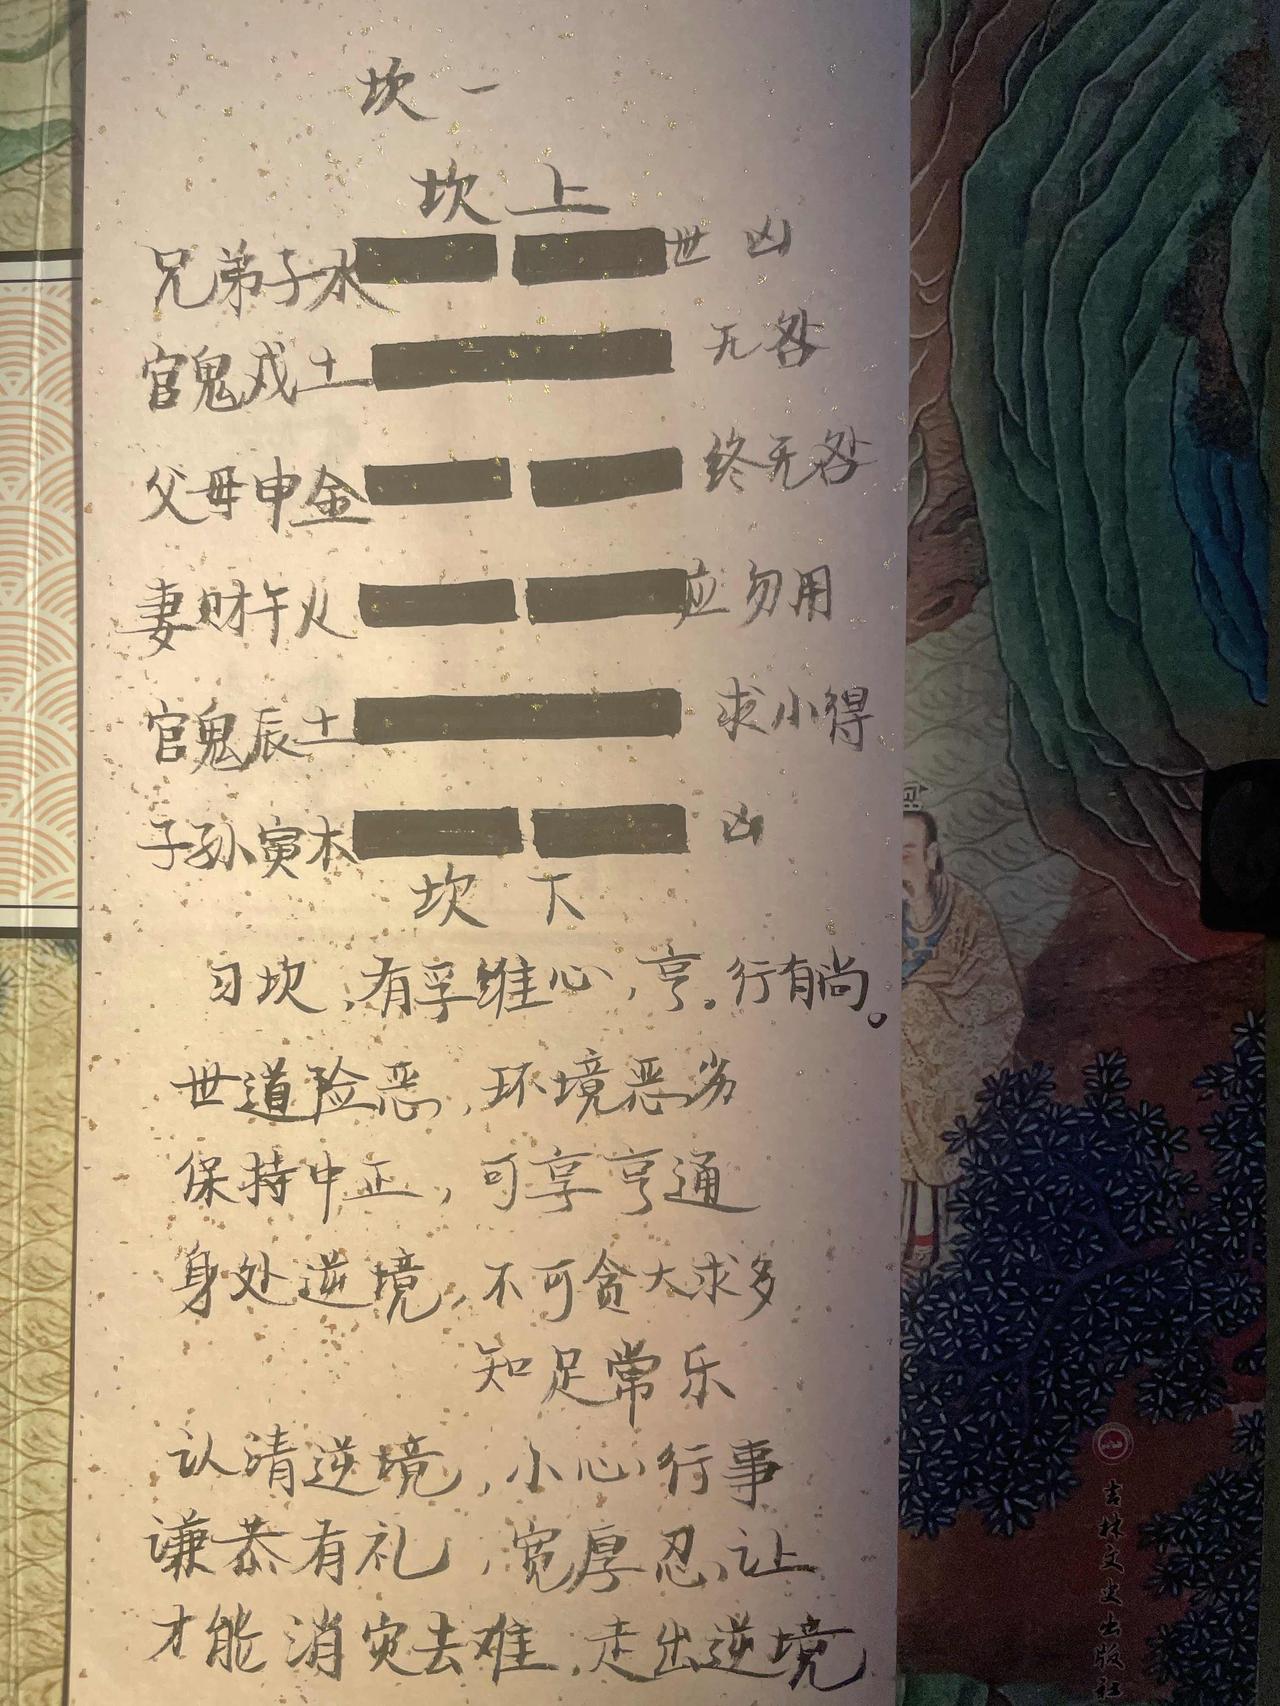 坎一
坎上
兄弟子水 世 凶
官鬼戍土 无咎
父母申金 终无咎
妻财午火 应 勿用
官鬼辰土 求小得
子孙寅木 凶
坎下
习坎,有孚维心,亨。行有尚。
世道险恶,环境恶劣
保持中正,可享亨通
身处逆境,不可贪大求多
知足常乐
认清逆境,小心行事
谦恭有礼,宽厚忍让
才能消灾去难,走出逆境
吉林文史出版社